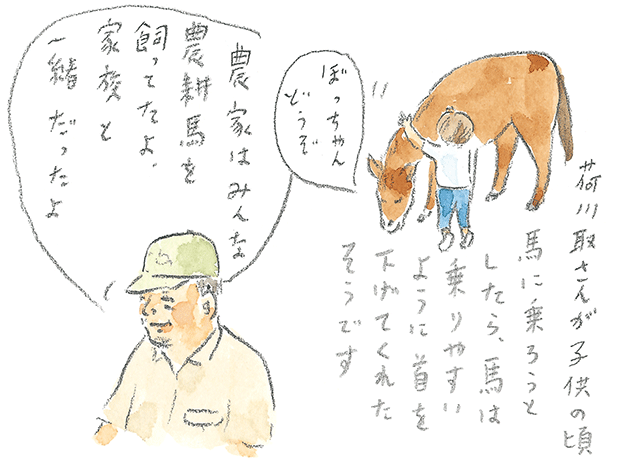 農家はみんな
農耕馬を
飼ってたよ、
家族と
一緒だったよ
ぼっちゃん
どうぞ
荷川取さんが子供の頃
馬に乗ろうと
したら、馬は
乗りやすい
ように首を
下げてくれた
そうです